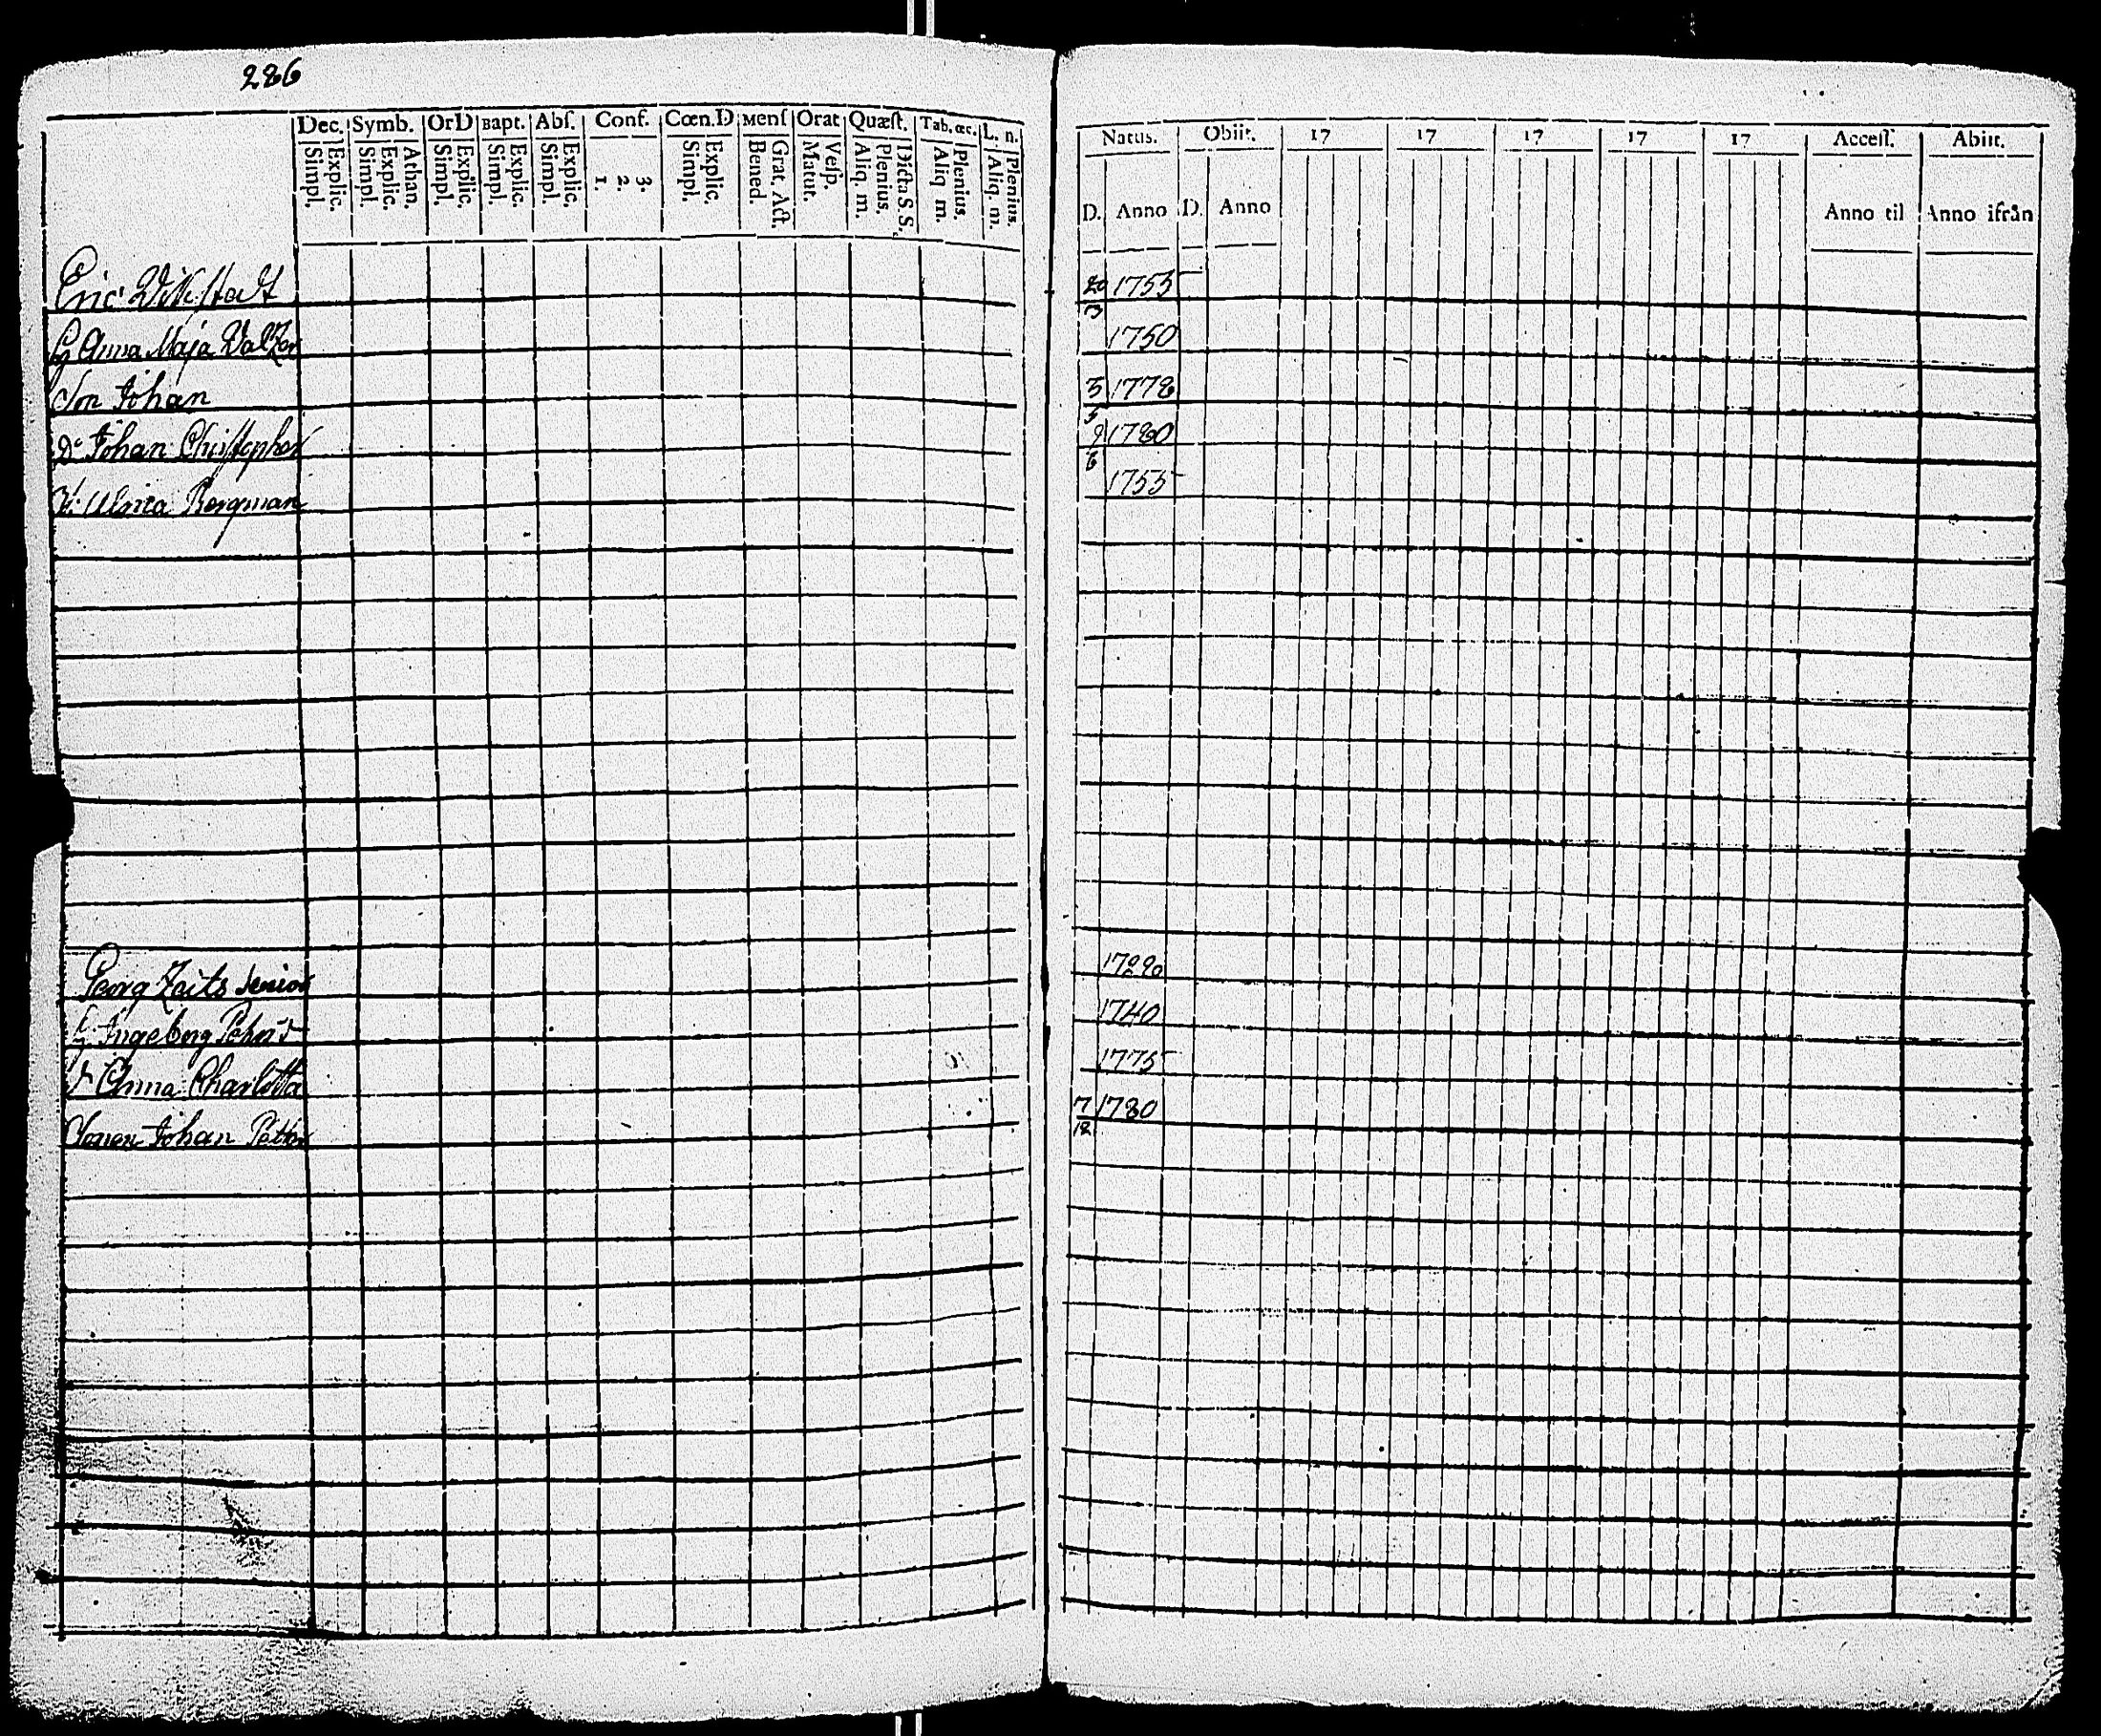 286
Dec. Symb. OrD Bapt. Abſ. Conf. Cœn.D Menſ Orat Quæſt. Tab. œc. L. n.
Simpl. Explic. Simpl. Explic. Athan. Simpl. Explic. Simpl. Explic. Simpl. Explic. 1. 2. 3. Simpl. Explic. Bened. Grat. Act. Matut. Veſp. Aliq. m. Plenius. Dicta S.S. Aliq m. Plenius. Aliq. m. Plenius.
Natus. Obiit. 17 17 17 17 17 Acceſſ. Abiit.
D. Anno D. Anno Anno til Anno ifrån
Eric Wikstedt 20/3 1755
H Anna Maja 1750
Son Johan 3/5 1778
Do Johan Christopher 9/6 1780
Ulrica Bergman 1755
Georg Zeits Senior
H. Ingeborg 1740
Anna Charlotta 1775
Johan Petter 7/12 1780